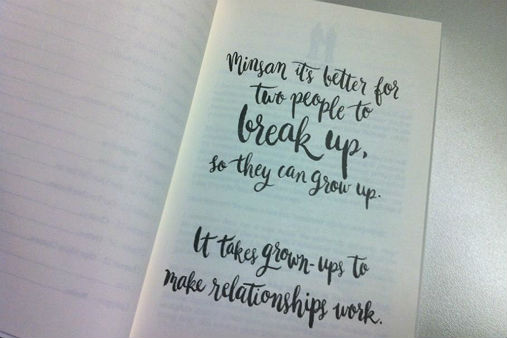 Minsan it's better for
two people to
break up,
so they can grow up.
It takes grown-ups to
make relationships work.